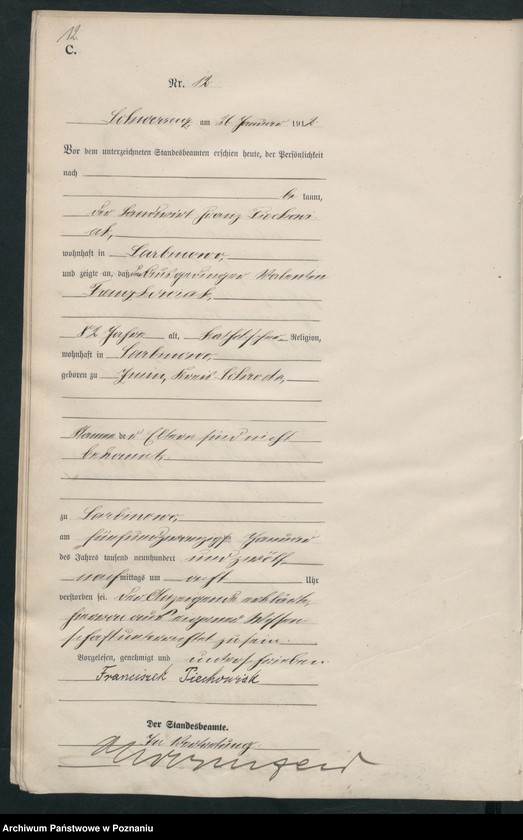 12
C.
Nr. 12
am 26 Januar 1912
Vor dem unterzeichneten Standesbeamten erschien heute, der Persönlichkeit
nach
be kannt,
der Landwirt Franz Piechowi
ak,
wohnhaft in
und zeigte an, daß der Ausgedinger Valentin
82 Jahre alt, katholischer Religion,
wohnhaft in
geboren zu Kreis Schroda,
Namen der Eltern sind nicht
bekannt,
zu
am fünfundzwanzigsten Januar
des Jahres tausend neunhundert und zwölf,
nachmittags um acht Uhr
verstorben sei. Der Anzeigende erklärte,
hiervon aus eigener Wissen
schaft unterrichtet zu sein.
Vorgelesen, genehmigt und unterschrieben
Franciszek Piechowiak
Der Standesbeamte.
In Vertretung
Archiwum Państwowe w Poznaniu